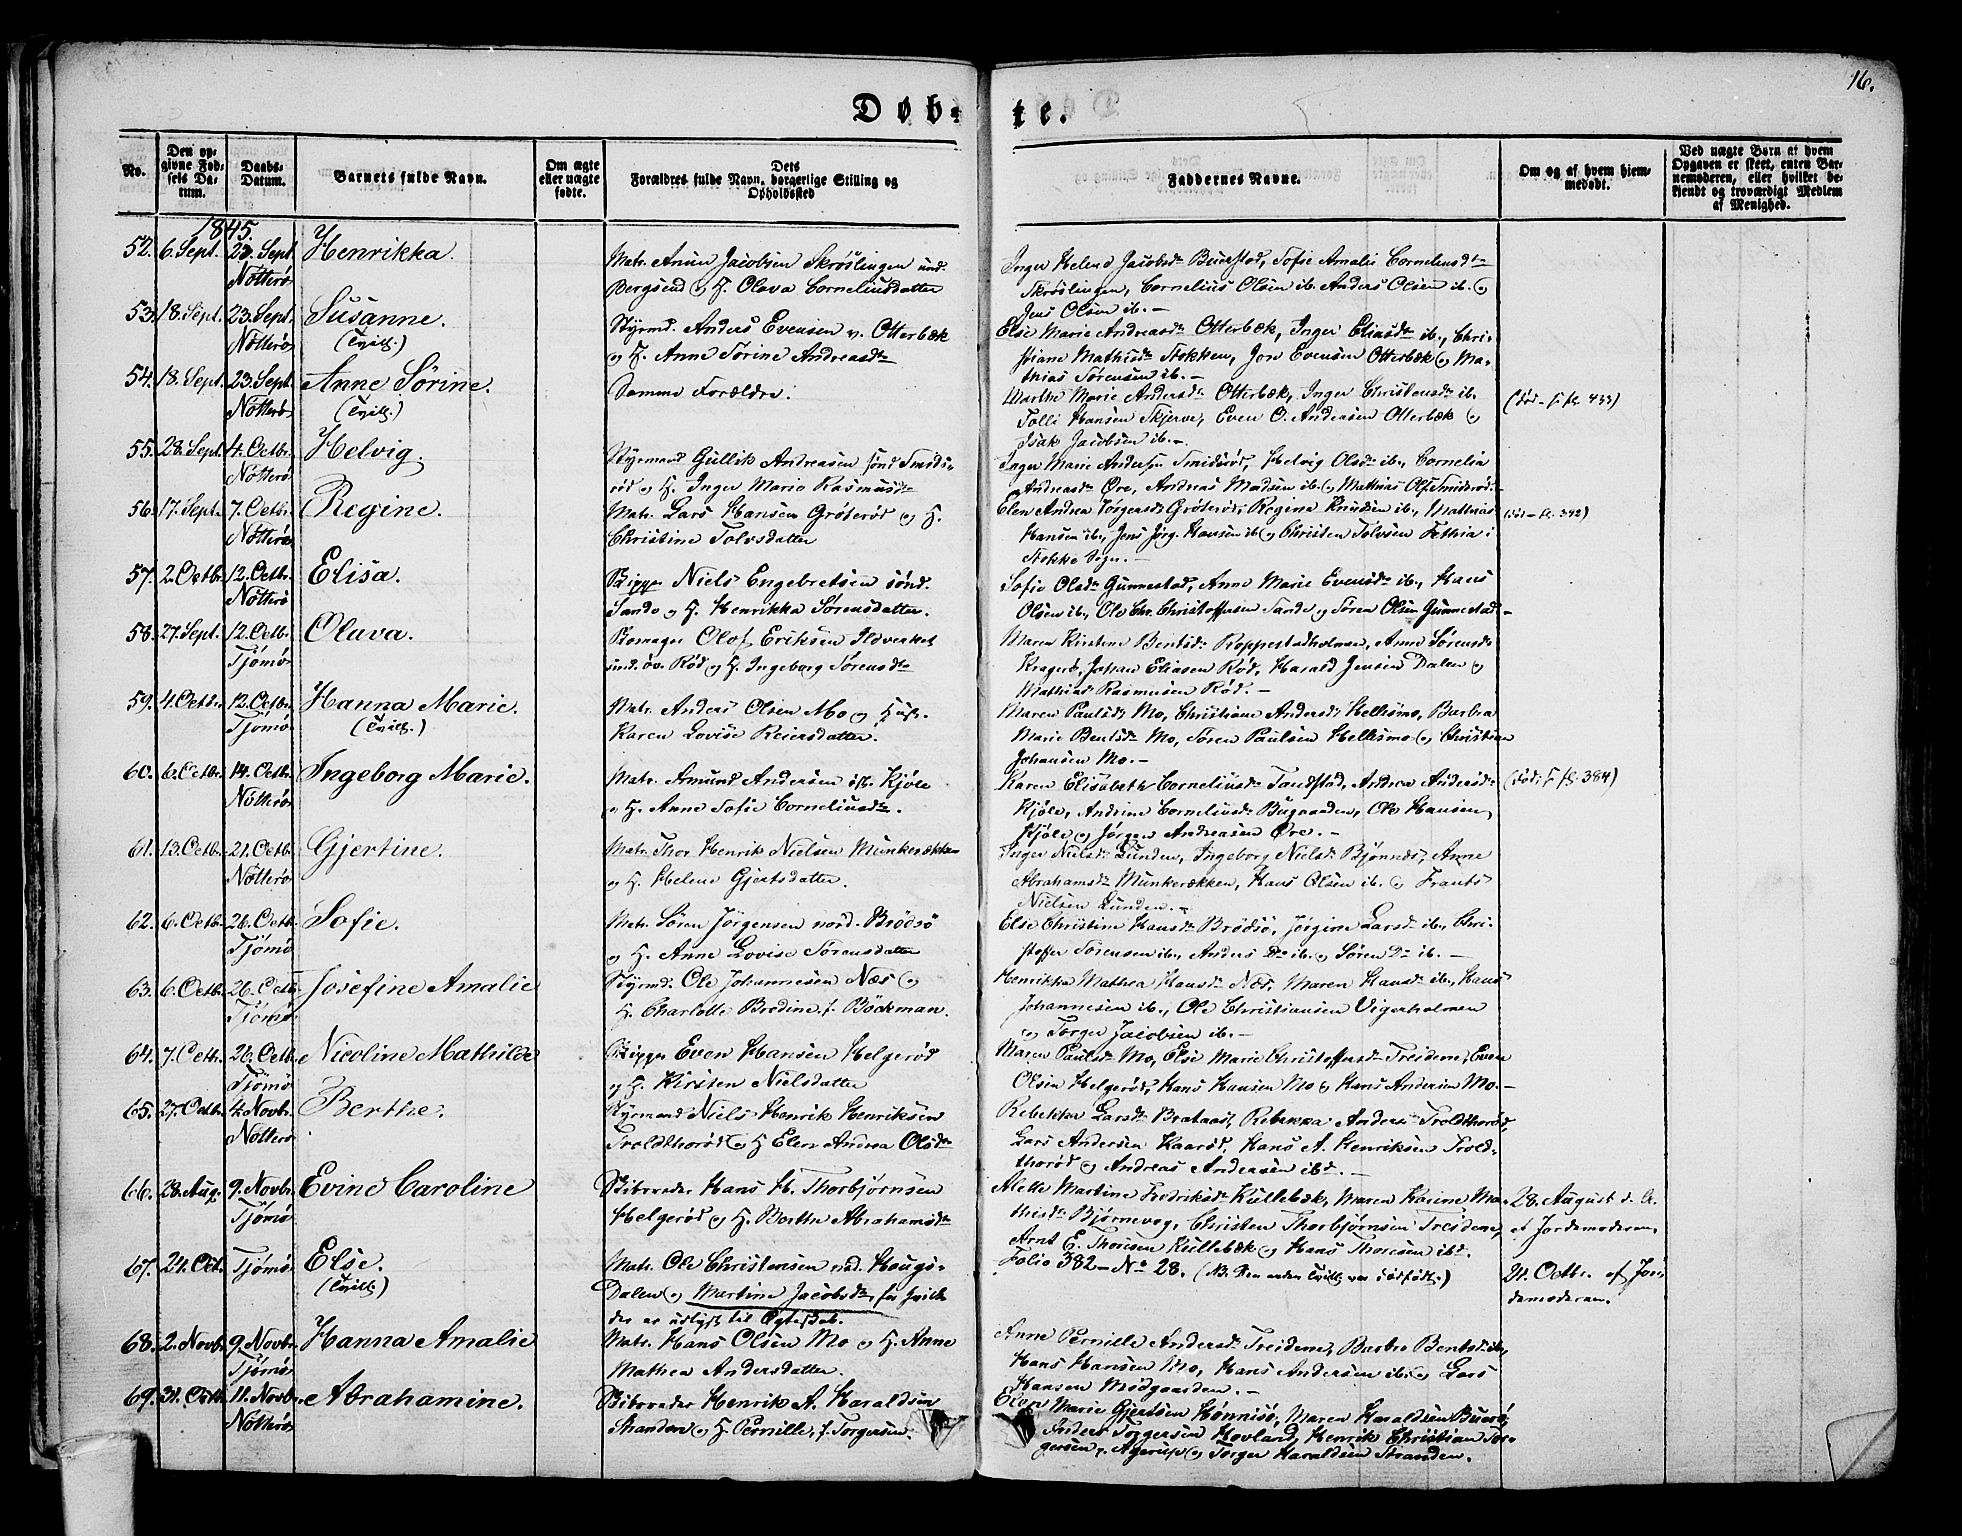 16.
Døb-te.
No.
Den op-
givne Fød-
sels Da-
tum.
Daabs-
Datum.
Barnets fulde Navn.
Om ægte
eller uægte
fødte.
Dets
Forældres fulde Navn, borgerlige Stilling og
Opholdssted
Faddernes Navne.
Om og af hvem hjem-
medøbt.
Ved uægte Børn af hvem
Opgaven er skeet, enten Bar-
nemoderen, eller hvilket be-
kjendt og troværdigt Medlem
af Menighed.
1845.
52. 6. Sept. 23. Sept. Nötterö Henrikka.
Matr. Anun Jacobsen Skröslingen
Bergsend og H. Olava Corneliusdatter
Inger Helene Jacobsdr Buerstad, Sofie Amalie Corneliusdtr
Skröslingen, Cornelius Olsen ib. Anders Olsen ib. og
Jens Olsen ib.-
53. 18. Sept. 23. Sept. Nötterö Susanne.
(Tvill.)
Styrmd. Anders Evensen v. Otterbæk
og H. Anne Sörine Andreasdtr
Else Marie Andreasdr Otterbæk, Inger Eliasdtr ib., Chri-
stiane Mathisdr Stokken, Jon Evensen Otterbæk og Ma-
thias Sörensen ib.-
54. 18. Sept. 23. Sept. Nötterö Anne Sörine.
(Tvill.)
Samme Forældre.
Marthe Marie Andersdr Otterbæk, Inger Christensdr ib.
Tolli Hansen Skjerve, Even O. Andersen Otterbæk og
Isak Jacobsen ib.-
55. 28. Sept. 4. Octbr. Nötterö Helvig.
Styrmand Gullik Andreasen sönd Smids-
röd og H. Inger Marie Rasmusdtr
Inger Marie Andersen Smidsröd, Helvig Olsdr ib., Cornelia
Andreasdr Öre, Andreas Madsen ib. og Mathias Ols. Smidsröd.-
56. 17. Sept. 7. Octbr. Nötterö Regine.
Matr. Lars Hansen Gröteröd og H.
Christine Tolvsdatter
Elen Andrea Jörgensdr Gröteröd, Regine Knudsen ib., Mathias
Hansen ib., Jens Jörg. Hansen ib. og Christen Tolvsen Fethia i
Stokke Sogn.-
57. 2. Octbr. 12. Octbr. Nötterö Elisa.
Skipper Niels Engebretsen sönd.
Sande og H. Henrikka Sörensdatter.
Sofie Olsdr Gunnestad, Anne Marie Evensdr ib., Hans
Olsen ib., Ole Chr. Christoffersen Sande og Sören Olsen Gunnestad-
58. 27. Sept. 12. Octbr. Tjömö Olava.
Olof Eriksen Ildverket
ind. öv. Röd og H. Ingeborg Sörensdtr
Maren Kirstine Bentsdr Roppestadholmen, Anne Sörensdr
Kragerö, Johan Eliasen Röd, Harald Jensen Dalen og
Mathias Rasmusen Röd.-
59. 4. Octbr. 12. Octbr. Tjömö Hanna Marie.
(Tvill.)
Matr. Anders Olsen Mo og Hust.
Karen Lovise Reiersdatter.
Maren Paulsdr Mo, Christiane Andersdr Hellesmo, Barbra
Marie Bentsdr Mo, Sören Paulsen Hellesmo og Christian
Johansen Mo.-
60. 6. Octbr. 14. Octbr. Nötterö Ingeborg Marie.
Matr. Amund Andersen östr. Kjöle
og H. Anne Sofie Corneliusdtr.
Karen Elisabeth Corneliusdr Sandstad, Andrea Andersdr
Kjöle, Andrine Corneliusdr Bugaarden, Ole Hansen
Kjöle og Jörgen Andreasen Öre.-
61. 13. Octbr. 21. Octbr. Nötterö Gjertine.
Matr. Thor Henrik Nielsen Munkerække
og H. Helene Gjertsdatter.
Inger Nielsdr Lunden, Ingeborg Nielsdr Bjönnes, Anne
Abrahamsdr Munkerækken, Hans Olsen ib. og Frants
Nielsen Lunden.-
62. 6. Octbr. 26. Octbr. Tjömö Sofie.
Matr. Sören Jörgensen nord. Brödsö
og H. Anne Lovise Sörensdatter
Else Christine Hansdr Brödsö, Jörgine Larsdr ib., Chri-
stoffer Sörensen ib., Anders Do ib. og Sören Do ib.-
63. 6. Octbr. 26. Octbr. Tjömö Josefine Amalie
Styrmd. Ole Johannesen Næs og
H. Charlotte Brodine f. Böckman.
Henrikka Mathea Hansdr Næs, Maren Hansdr ib., Hans
Johannesen ib., Ole Christiansen Vigerholmen
og Torger Jacobsen ib.-
64. 7. Octbr. 26. Octbr. Tjömö Nicoline Mathilde
Skipper Even Hansen Helgeröd
og H. Kirsten Nielsdatter
Maren Paulsdr Mo, Else Marie Christoffersdr Treidene, Even
Olsen Helgeröd, Hans Hansen Mo og Hans Andersen Mo.-
65. 27. Octbr. 4. Novbr. Nötterö Berthe.
Styrmand Niels Henrik Henriksen
Troldthoröd og H. Elen Andrea Olsdtr
Rebekka Larsdr Brataas, Rebekka Andersdr Troldthoröd,
Lars Andersen Kaaröd, Hans A. Henriksen Trold-
thoröd og Andreas Andersen ibd.-
66. 28. Aug. 9. Novbr. Tjömö Evine Caroline
Hans H. Thorbjörnsen
Helgeröd og H. Berthe Abrahamsdtr
Alette Martine Fredriksdr Kullebæk, Maren Karine Ma-
thisdr Bjørnevog, Christen Thorbjörnsen Treidene,
Arnt E. Thoresen Kullebæk og Hans Thoresen ibd.
28. August d. A.
af Jordemoderen.
67. 21. Oct. Tjömö Else.
(Tvill.)
Matr. Ole Christensen nd. Hougs-
Dalen og Martine Jacobsdtr, for hvilke
der er udlyst til Ægteskab.
Folio 382 - No 28. (NB. Den anden Tvill. var dödfødt.)
21. Octbr. af Jor-
demoderen.
68. 2. Novbr. 9. Novbr. Tjömö Hanna Amalie
Matr. Hans Olsen Mo og H. Anne
Mathea Andersdatter.
Anne Pernille Andersdr Treidene, Barbro Bentsdr ib.,
Hans Hansen Mo, Hans Andersen ib. og Lars
Hansen Mödgaarden.-
69. 31. Octbr. 11. Novbr. Nötterö Abrahamine.
Henrik A. Haraldsen
Stranden og H. Pernille f. Torgersen.
Elen Marie Gjertsen Hönnisö, Maren Haraldsen Buerö,
Anders Torgersen Hovland, Henrik Christian Tor-
gersen Agerup og Torger Haraldsen Stranden.